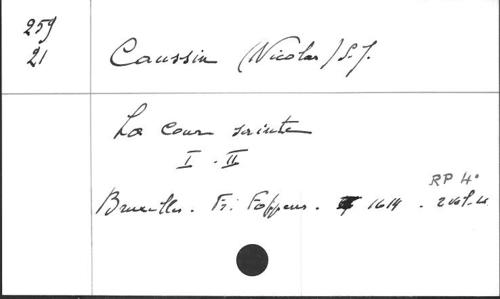 259
21
Caussin (Nicolas) S.J.
La cour sainte
I - II
RP 4°
Bruxelles. Fr. Foppens. 16 . 2 vol. 4